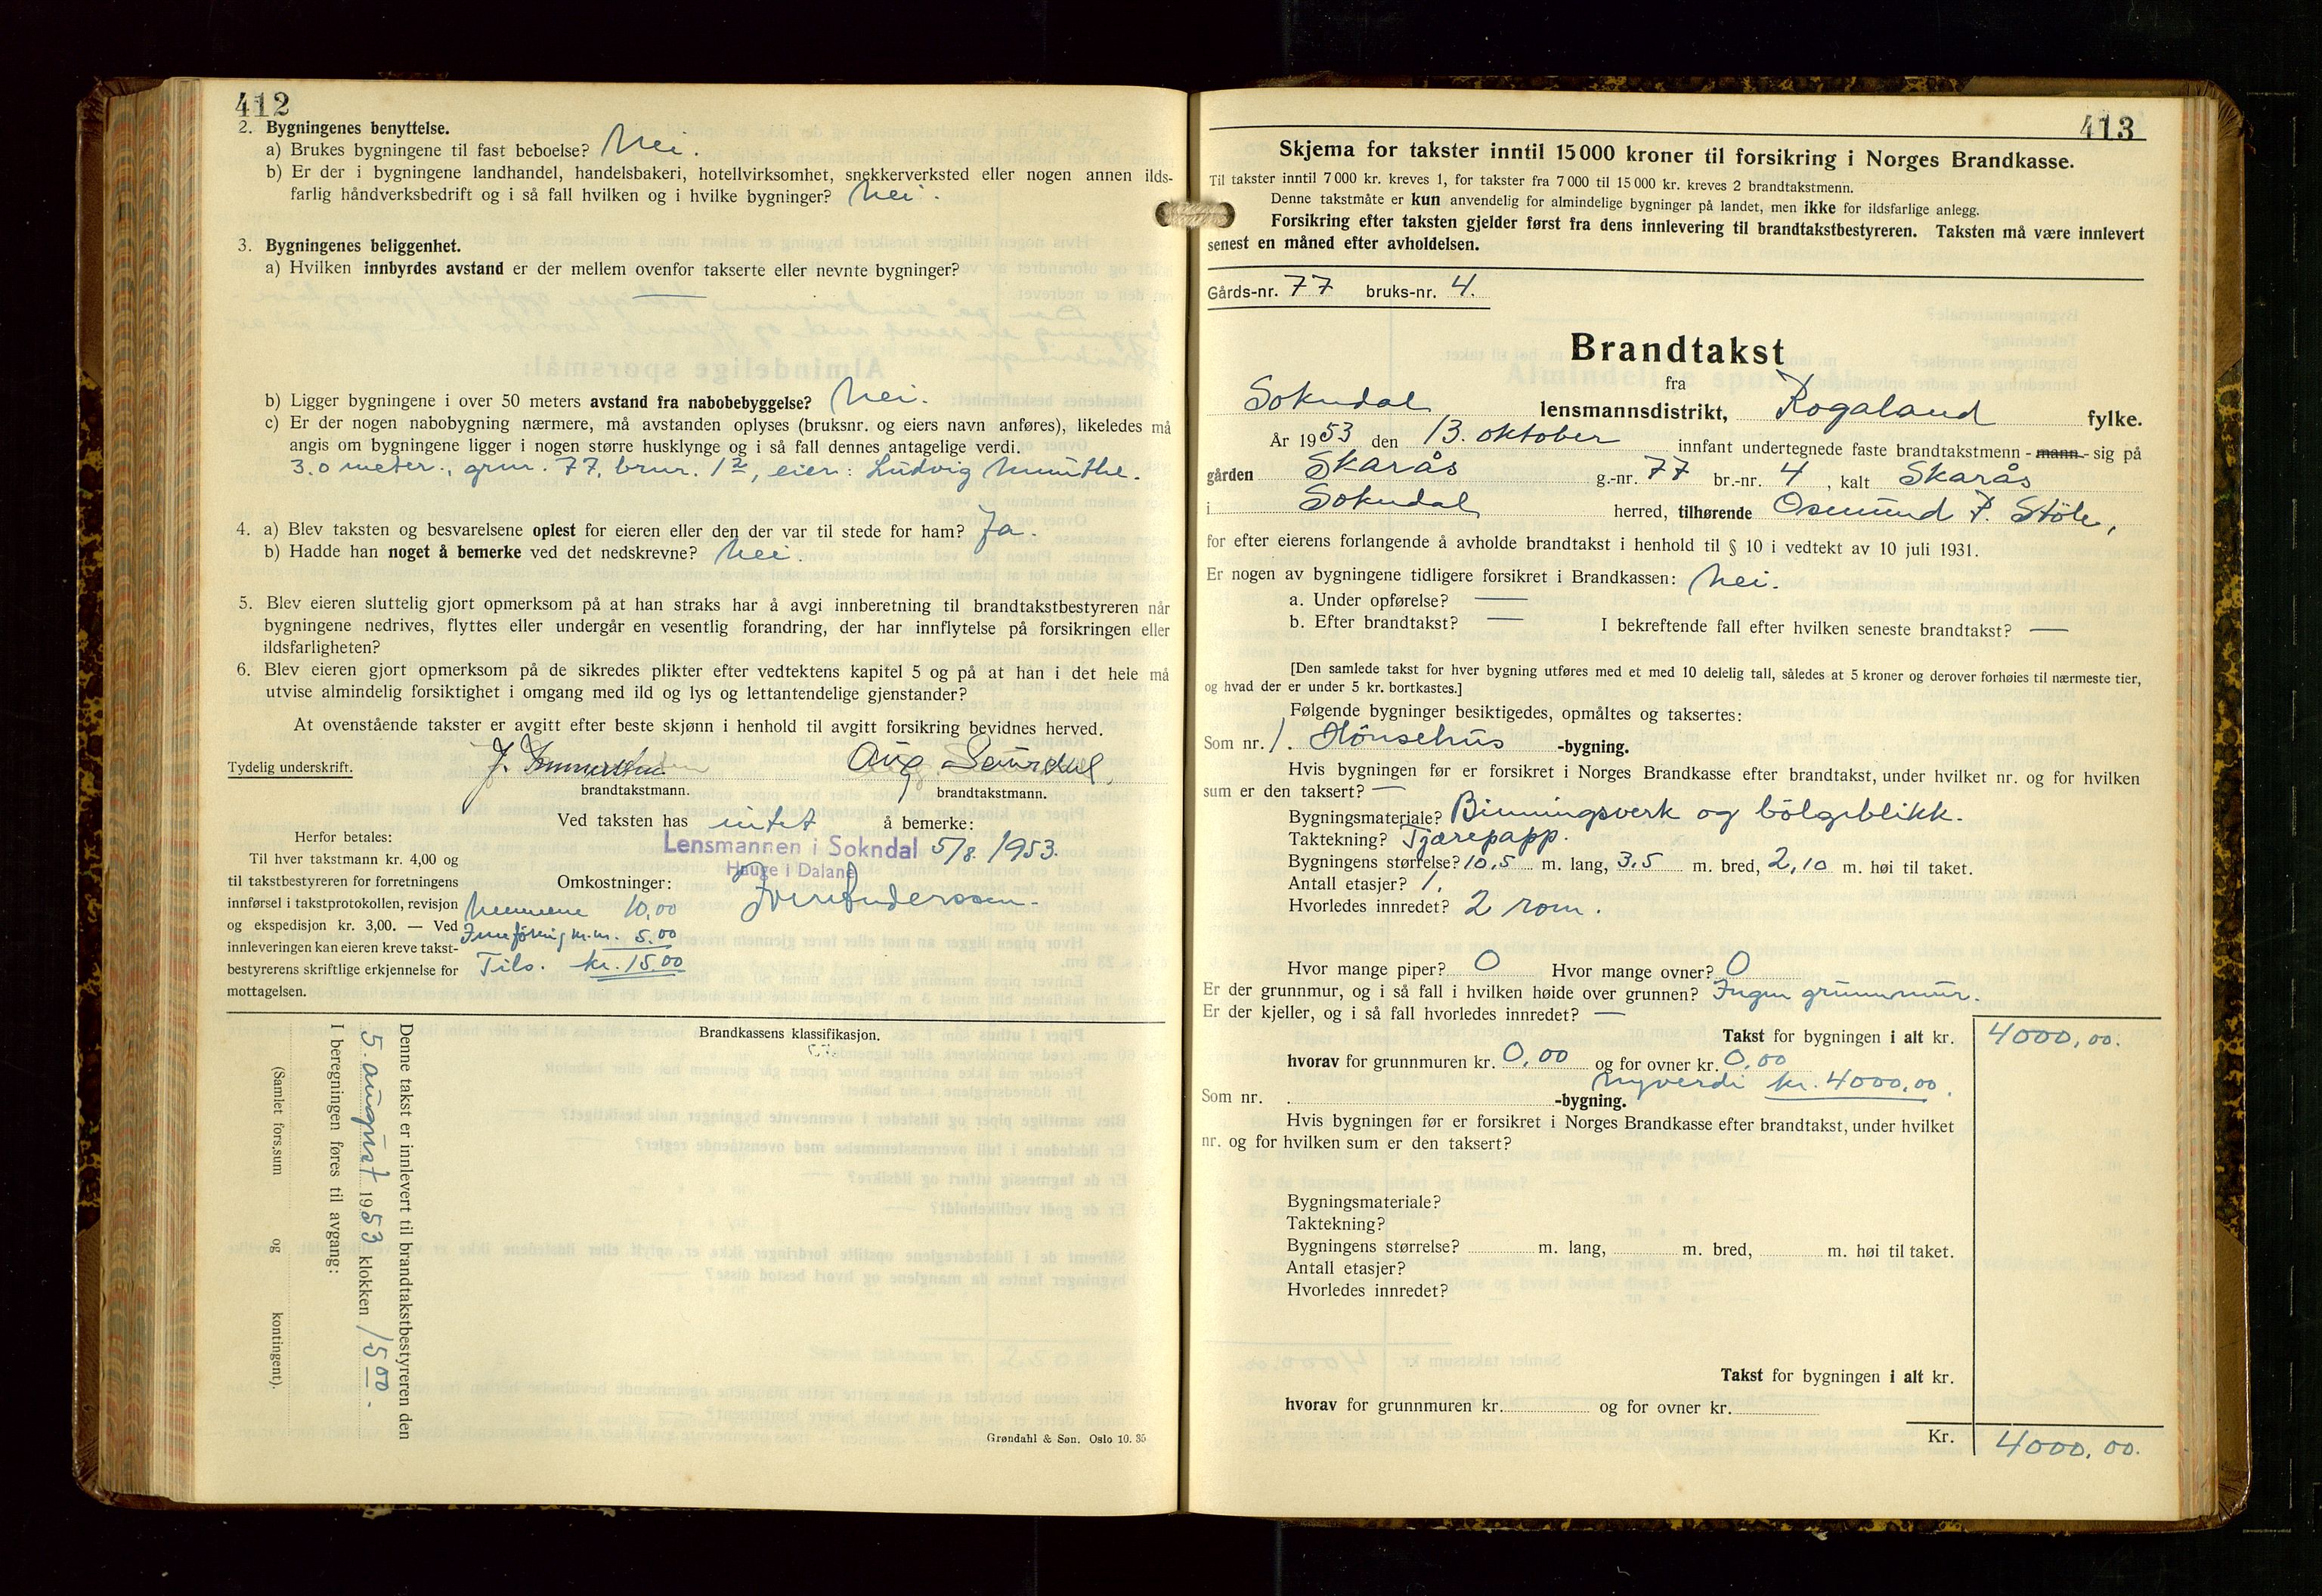 412
2. Bygningenes benyttelse.
a) Brukes bygningene til fast beboelse? Nei.
b) Er der i bygningene landhandel, handelsbakeri, hotellvirksomhet, snekkerverksted eller nogen annen ilds-
farlig håndverksbedrift og i så fall hvilken og i hvilke bygninger? Nei.
3. Bygningenes beliggenhet.
a) Hvilken innbyrdes avstand er der mellem ovenfor takserte eller nevnte bygninger?
—
b) Ligger bygningene i over 50 meters avstand fra nabobebyggelse? Nei.
c) Er der nogen nabobygning nærmere, må avstanden oplyses (bruksnr. og eiers navn anføres), likeledes må
angis om bygningene ligger i nogen større husklynge og i så fall dennes antagelige verdi.
3.0 meter., grnr. 77, brnr. 12, eier: Ludvig Munthe.
4. a) Blev taksten og besvarelsene oplest for eieren eller den der var til stede for ham? Ja.
b) Hadde han noget å bemerke ved det nedskrevne? Nei.
5. Blev eieren sluttelig gjort opmerksom på at han straks har å avgi innberetning til brandtakstbestyreren når
bygningene nedrives, flyttes eller undergår en vesentlig forandring, der har innflytelse på forsikringen eller
ildsfarligheten?
6. Blev eieren gjort opmerksom på de sikredes plikter efter vedtektens kapitel 5 og på at han i det hele må
utvise almindelig forsiktighet i omgang med ild og lys og lettantendelige gjenstander?
At ovenstående takster er avgitt efter beste skjønn i henhold til avgitt forsikring bevidnes herved.
Tydelig underskrift. J. Aug.
brandtakstmann. brandtakstmann.
Ved taksten has intet å bemerke:
Lensmannen i Sokndal 5/8. 1953.
Hauge i Dalane
Herfor betales:
Til hver takstmann kr. 4,00 og
til takstbestyreren for forretningens
innførsel i takstprotokollen, revisjon
og ekspedisjon kr. 3,00. — Ved
innleveringen kan eieren kreve takst-
bestyrerens skriftlige erkjennelse for
mottagelsen.
Omkostninger:
Mennene 10,00
Innføring m.m. 5.00
Tils. kr. 15.00
Brandkassens klassifikasjon.
Denne takst er innlevert til brandtakstbestyreren den
5. august 1953 klokken 15 00.
I beregningen føres til avgang:
(Samlet fors.sum og kontingent).
Grøndahl & Søn. Oslo 10. 35
413
Skjema for takster inntil 15 000 kroner til forsikring i Norges Brandkasse.
Til takster inntil 7 000 kr. kreves 1, for takster fra 7 000 til 15 000 kr. kreves 2 brandtakstmenn.
Denne takstmåte er kun anvendelig for almindelige bygninger på landet, men ikke for ildsfarlige anlegg.
Forsikring efter taksten gjelder først fra dens innlevering til brandtakstbestyreren. Taksten må være innlevert
senest en måned efter avholdelsen.
Gårds-nr. 77 bruks-nr. 4.
Brandtakst
fra
Sokndal lensmannsdistrikt, Rogaland fylke.
År 1953 den 13. oktober innfant undertegnede faste brandtakstmenn - mann - sig på
gården Skarås g.-nr. 77 br.-nr. 4, kalt Skarås
i Sokndal herred, tilhørende Osmund P. Støle,
for efter eierens forlangende å avholde brandtakst i henhold til § 10 i vedtekt av 10 juli 1931.
Er nogen av bygningene tidligere forsikret i Brandkassen: Nei.
a. Under opførelse? —
b. Efter brandtakst? — I bekreftende fall efter hvilken seneste brandtakst? —
[Den samlede takst for hver bygning utføres med et med 10 delelig tall, således at 5 kroner og derover forhøies til nærmeste tier,
og hvad der er under 5 kr. bortkastes.]
Følgende bygninger besiktigedes, opmåltes og taksertes:
Som nr. 1. Hønsehus -bygning.
Hvis bygningen før er forsikret i Norges Brandkasse efter brandtakst, under hvilket nr. og for hvilken
sum er den taksert? —
Bygningsmateriale? Binningsverk og bølgeblikk.
Taktekning? Tjærepapp.
Bygningens størrelse? 10,5 m. lang, 3,5 m. bred, 2,10 m. høi til taket.
Antall etasjer? 1,
Hvorledes innredet? 2 rom.
Hvor mange piper? 0 Hvor mange ovner? 0
Er der grunnmur, og i så fall i hvilken høide over grunnen? Ingen grunnmur.
Er der kjeller, og i så fall hvorledes innredet? —
Takst for bygningen i alt kr. 4000,00.
hvorav for grunnmuren kr. 0,00 og for ovner kr. 0,00
Nyverdi kr. 4000,00.
Som nr. -bygning.
Hvis bygningen før er forsikret i Norges Brandkasse efter brandtakst, under hvilket
nr. og for hvilken sum er den taksert?
Bygningsmateriale?
Taktekning?
Bygningens størrelse? m. lang, m. bred, m. høi til taket.
Antall etasjer?
Hvorledes innredet?
Takst for bygningen i alt kr.
hvorav for grunnmuren kr. og for ovner kr.
Kr. 4000,00.